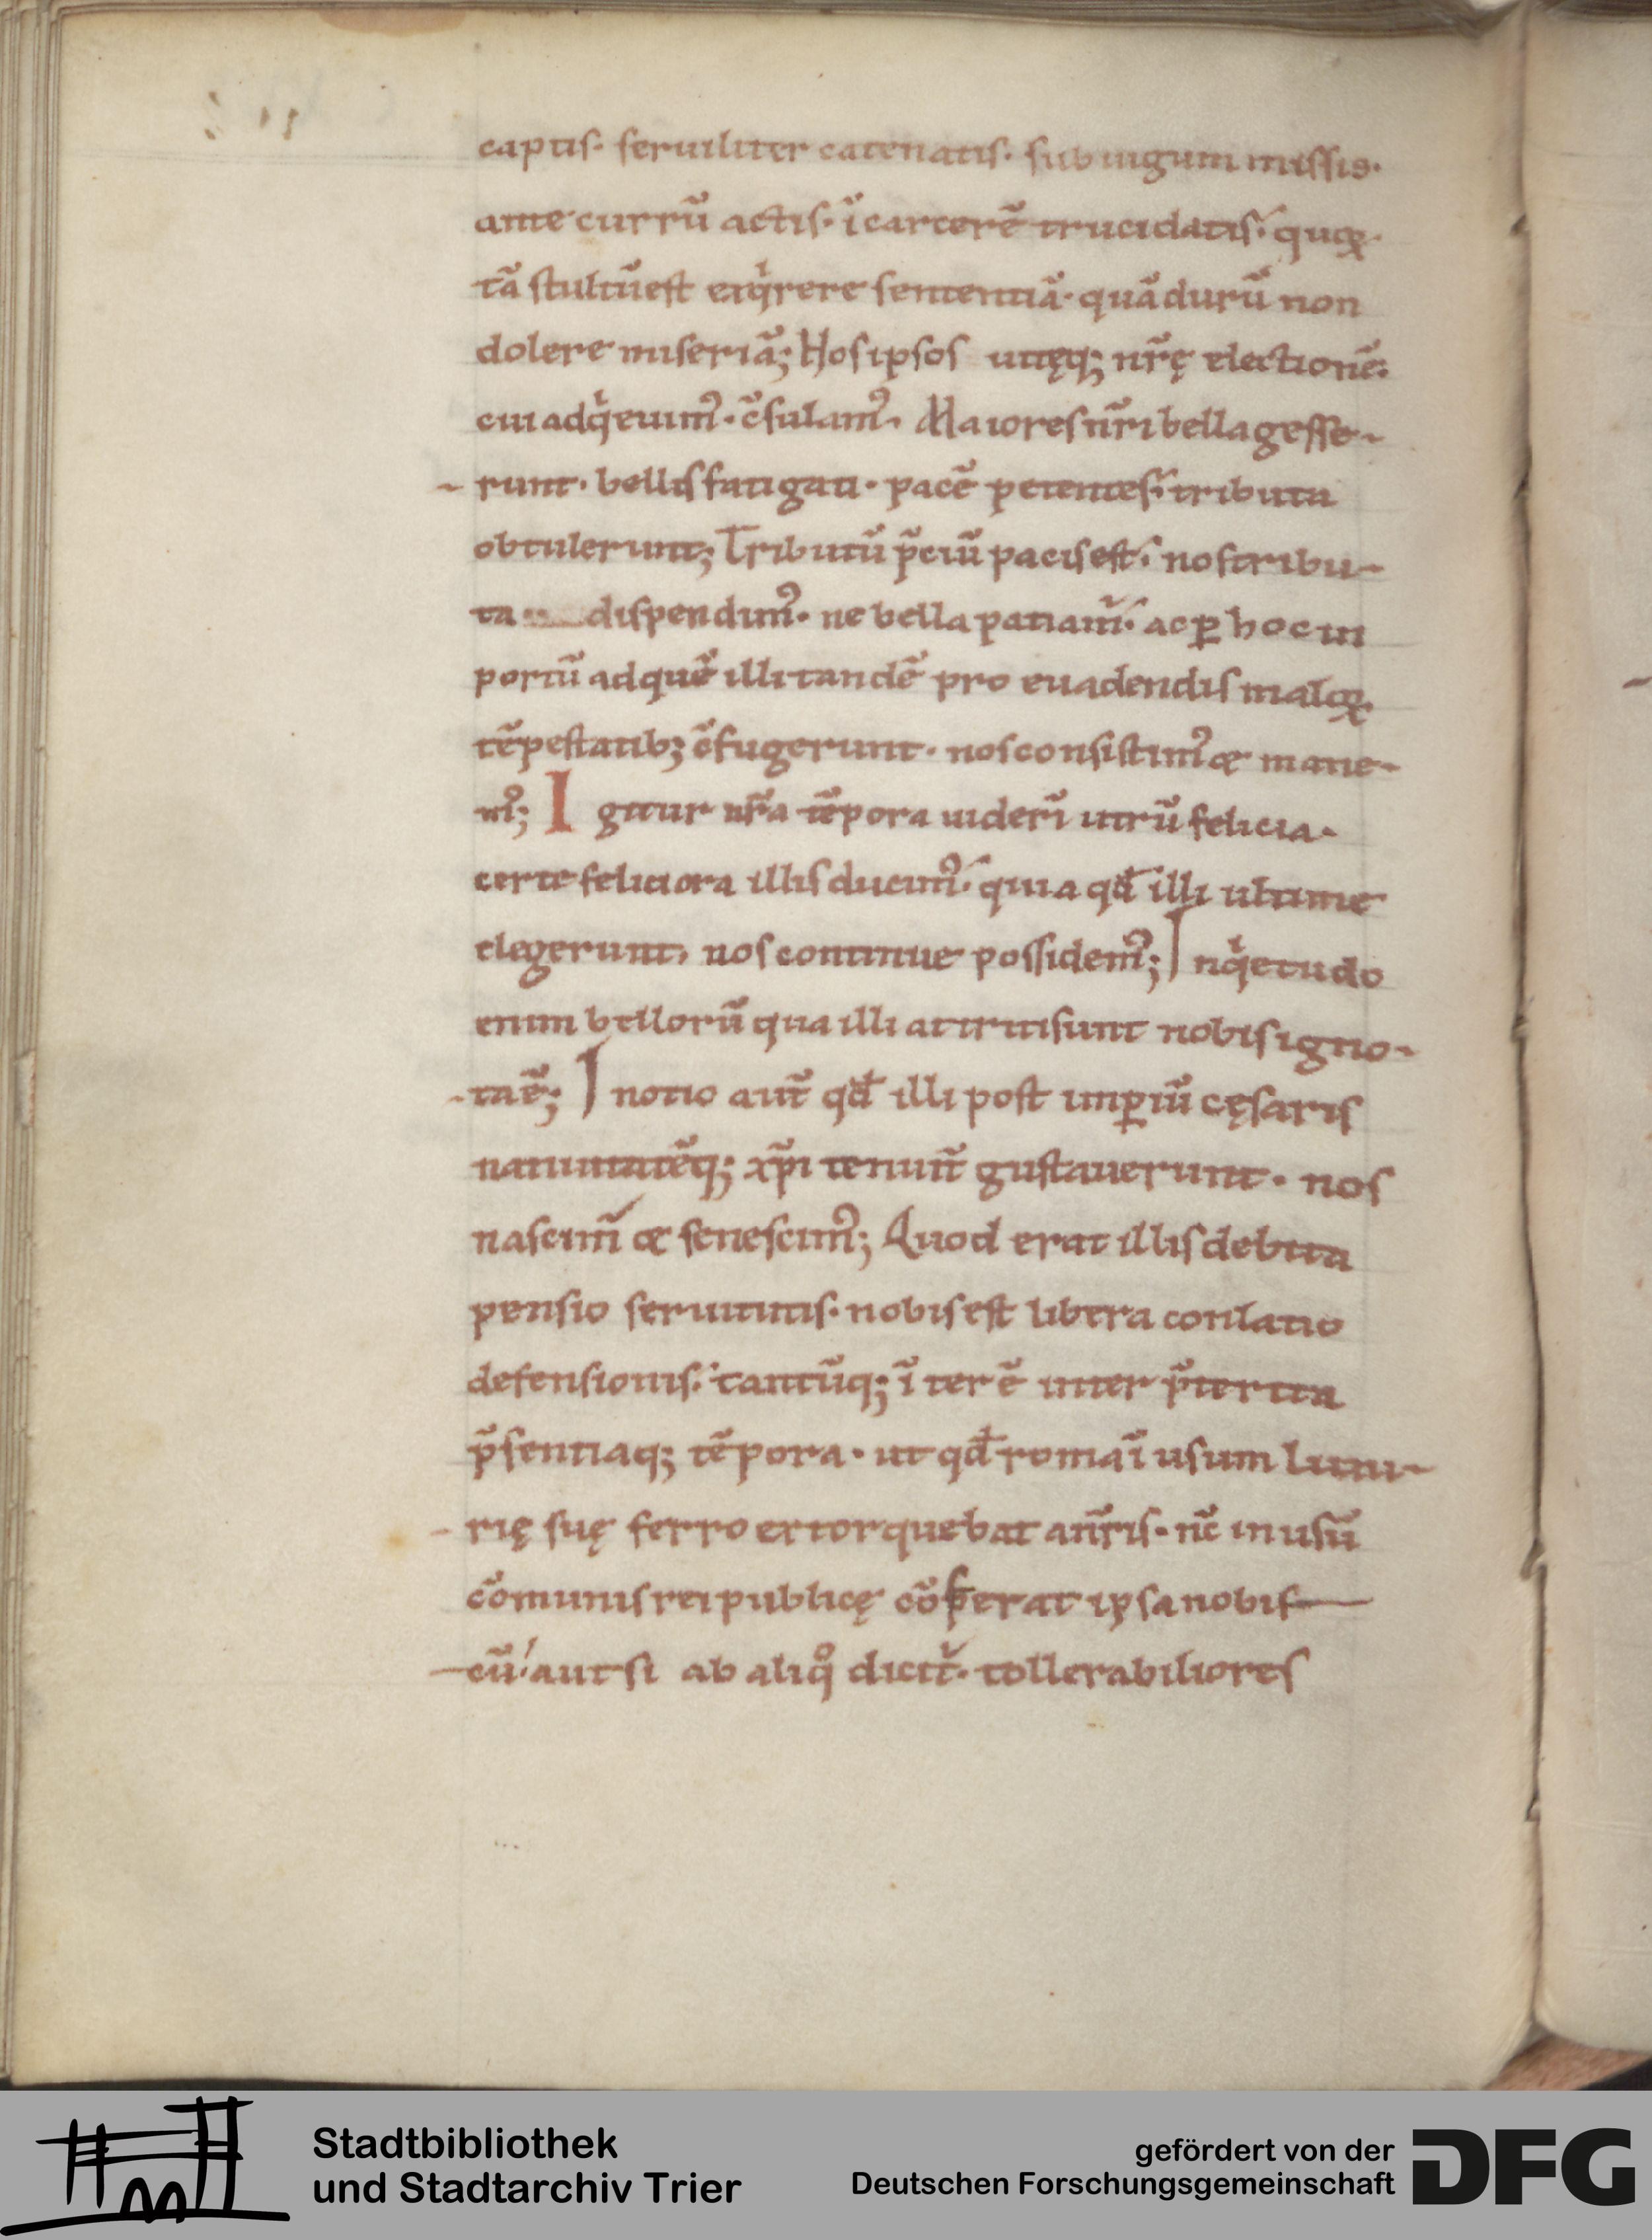 captis· seruiliter catenatis· sub iugum missis·
ante currū actis· ī carcerē trucidatis· quoꝝ·
tā stultū est exqͥrere sententiā· quā durū non
dolere miseriā; Hos ipsos uitęq; nr̄ę electionē·
cui adqͥeuimꝰ· c̄sulamꝰ· Maiores nr̄i bella gesse-
runt· bellis fatigati· pacē petentes tributa
obtulerunt; Tributū p̄ciū pacis est· nos tribu-
ta dispendimꝰ· ne bella patiam̄· ac ꝑ hoc in
portū ad quē illi tandē pro euadendis maloꝝ
tēpestatib; c̄fugerunt· nos consistimꝰ & mane-
mꝰ; Igitur nr̄a tēpora uiderī utrū felicia·
certe feliciora illis ducimꝰ· quia qđ illi ultime
elegerunt, nos continue possidemꝰ; Inqͥetudo
enim bellorū qua illi attriti sunt nobis igno-
ta ē; In otio aut̄ qđ illi post imꝑiū cęsaris
natiuitatēq; xp̄i tenuit̄ gustauerunt· nos
nascim̄ & senescimꝰ; Quod erat illis debita
pensio seruitutis· nobis est libera conlatio
defensionis· tantūq; īterē inter p̄terita
p̄sentiaq; tēpora· ut qđ romaī usum luxu-
rię suę ferro extorquebat a nr̄is· nc̄ in usū
cōmunis rei publicę cōferat ipsa nobis
cū· aut si ab aliqͦ dicit̄· tollerabiliores
Stadtbibliothek
und Stadtarchiv Trier
gefördert von der
Deutschen Forschungsgemeinschaft
DFG